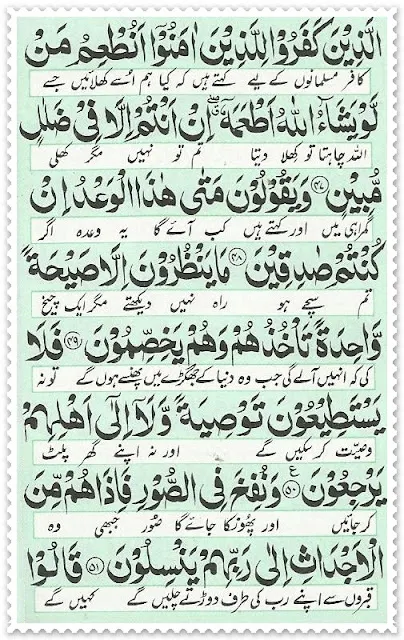 الَّذِيْنَ كَفَرُوْا لِلَّذِيْنَ اٰمَنُوْٓا اَنُطْعِمُ مَنْ
کافر مسلمانوں کے لیے کہتے ہیں کہ کیا ہم اسے کھلائیں جسے
لَّوْ يَشَآءُ اللّٰهُ اَطْعَمَهٗٓ ۖ اِنْ اَنْتُمْ اِلَّا فِيْ ضَلٰلٍ
اللہ چاہتا تو کھلا دیتا تم تو نہیں مگر کھلی
مُّبِيْنٍ ﴿۴۷﴾ وَيَقُوْلُوْنَ مَتٰى هٰذَا الْوَعْدُ اِنْ
گمراہی میں اور کہتے ہیں کب آئے گا یہ وعدہ اگر
كُنْتُمْ صٰدِقِيْنَ ﴿۴۸﴾ مَا يَنْظُرُوْنَ اِلَّا صَيْحَةً
تم سچے ہو راہ نہیں دیکھتے مگر ایک چیخ
وَّاحِدَةً تَاْخُذُهُمْ وَهُمْ يَخِصِّمُوْنَ ﴿۴۹﴾ فَلَا
کی کہ انہیں آلے گی جب وہ دنیا کے جھگڑے میں پھنسے ہوں گے تو نہ
يَسْتَطِيْعُوْنَ تَوْصِيَةً وَّلَآ اِلٰٓى اَهْلِهِمْ
وصیت کر سکیں گے اور نہ اپنے گھر پلٹ
يَرْجِعُوْنَ ﴿۵۰﴾ ع وَنُفِخَ فِي الصُّوْرِ فَاِذَا هُمْ مِّنَ
کر جائیں اور پھونکا جائے گا صور جبھی وہ
الْاَجْدَاثِ اِلٰى رَبِّهِمْ يَنْسِلُوْنَ ﴿۵۱﴾ قَالُوْا
قبروں سے اپنے رب کی طرف دوڑتے چلیں گے کہیں گے